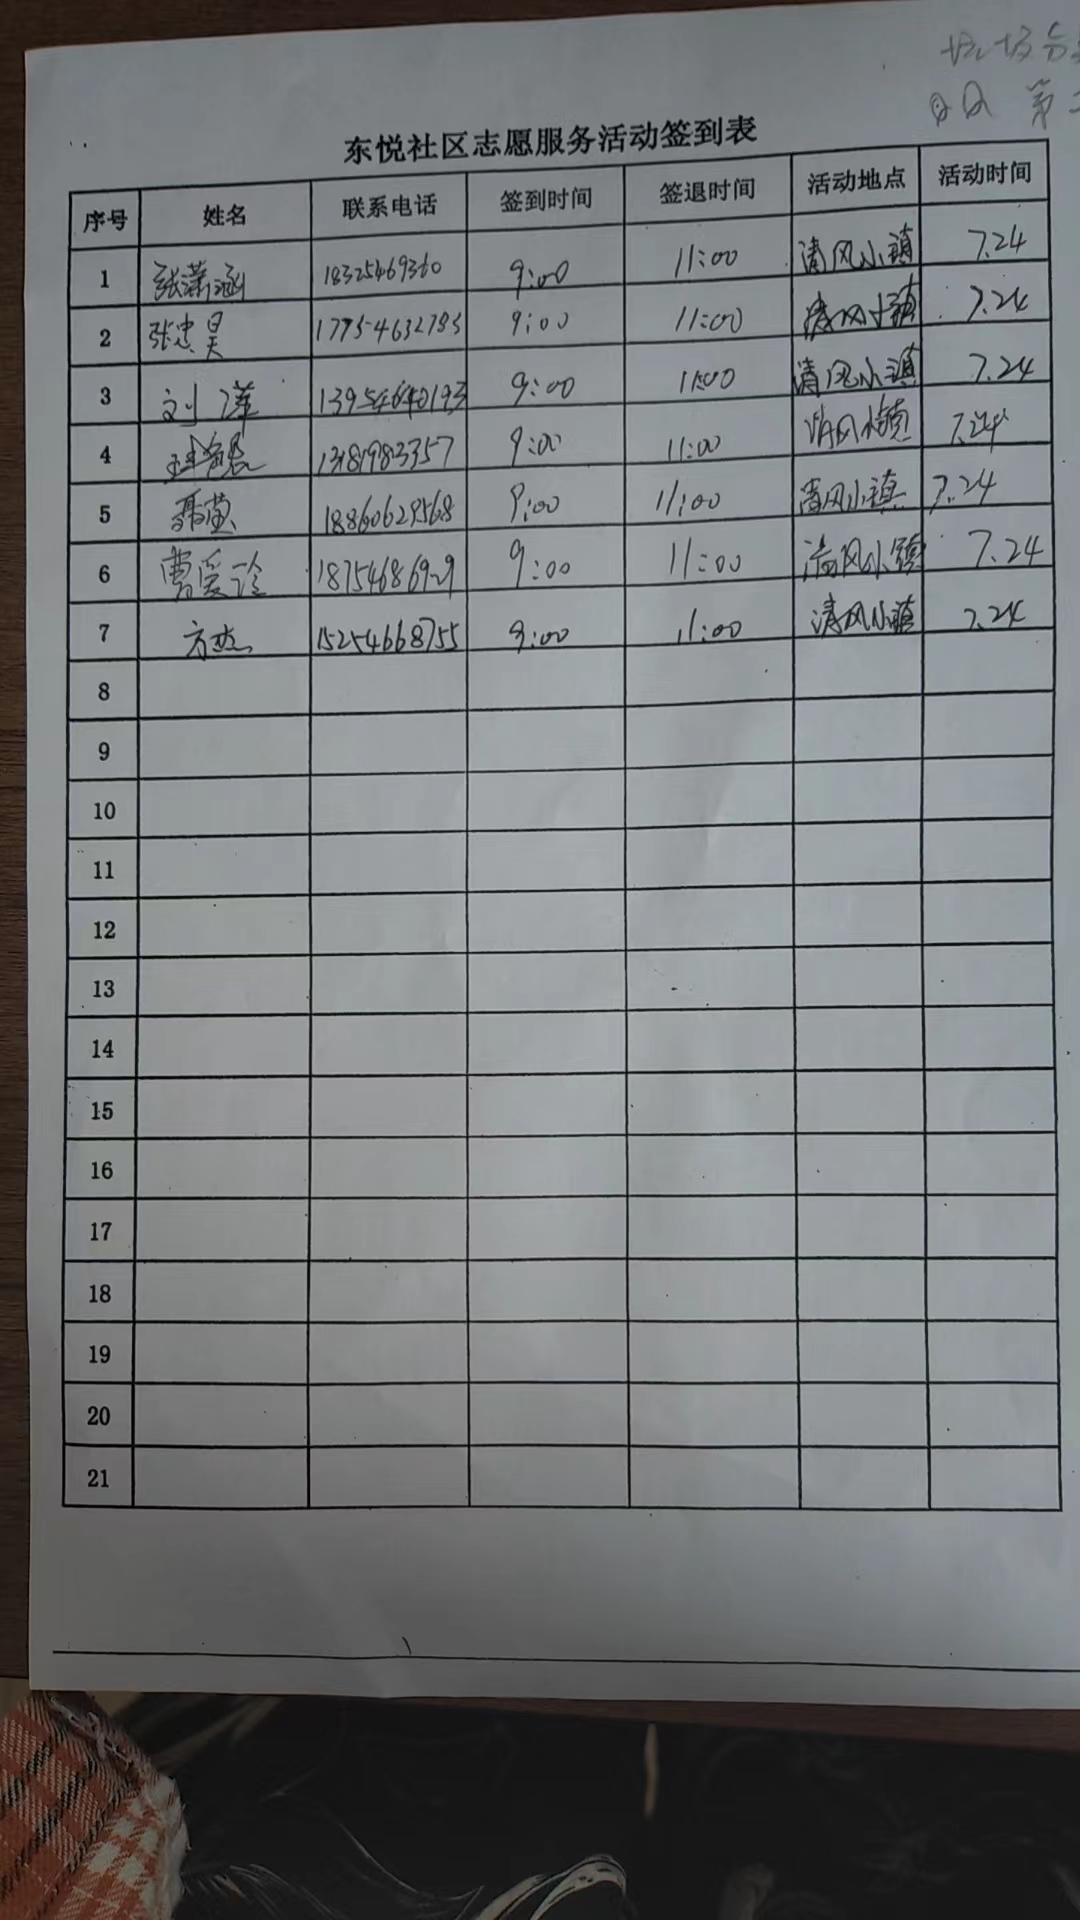 东悦社区志愿服务活动签到表
序号 姓名 联系电话 签到时间 签退时间 活动地点 活动时间
1 张潇涵 18325469360 9:00 11:00 清风小镇 7.24
2 张忠昊 17754632783 9:00 11:00 清风小镇 7.24
3 刘萍 13954640193 9:00 11:00 清风小镇 7.24
4 9:00 11:00 清风小镇 7.24
5 聂莹 18860629568 9:00 11:00 清风小镇 7.24
6 曹爱玲 18754686929 9:00 11:00 清风小镇 7.24
7 方杰 15254668755 9:00 11:00 清风小镇 7.24
8
9
10
11
12
13
14
15
16
17
18
19
20
21